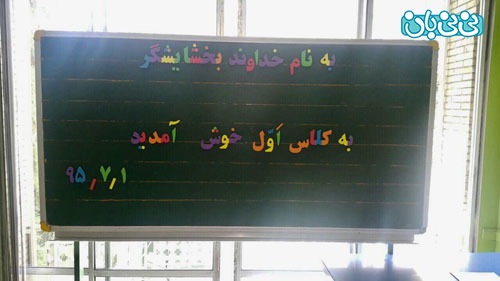 نی‌نی‌بان
به نام خداوند بخشایشگر
به کلاس اَوّل خوش آمدید
۹۵٫۷٫۱